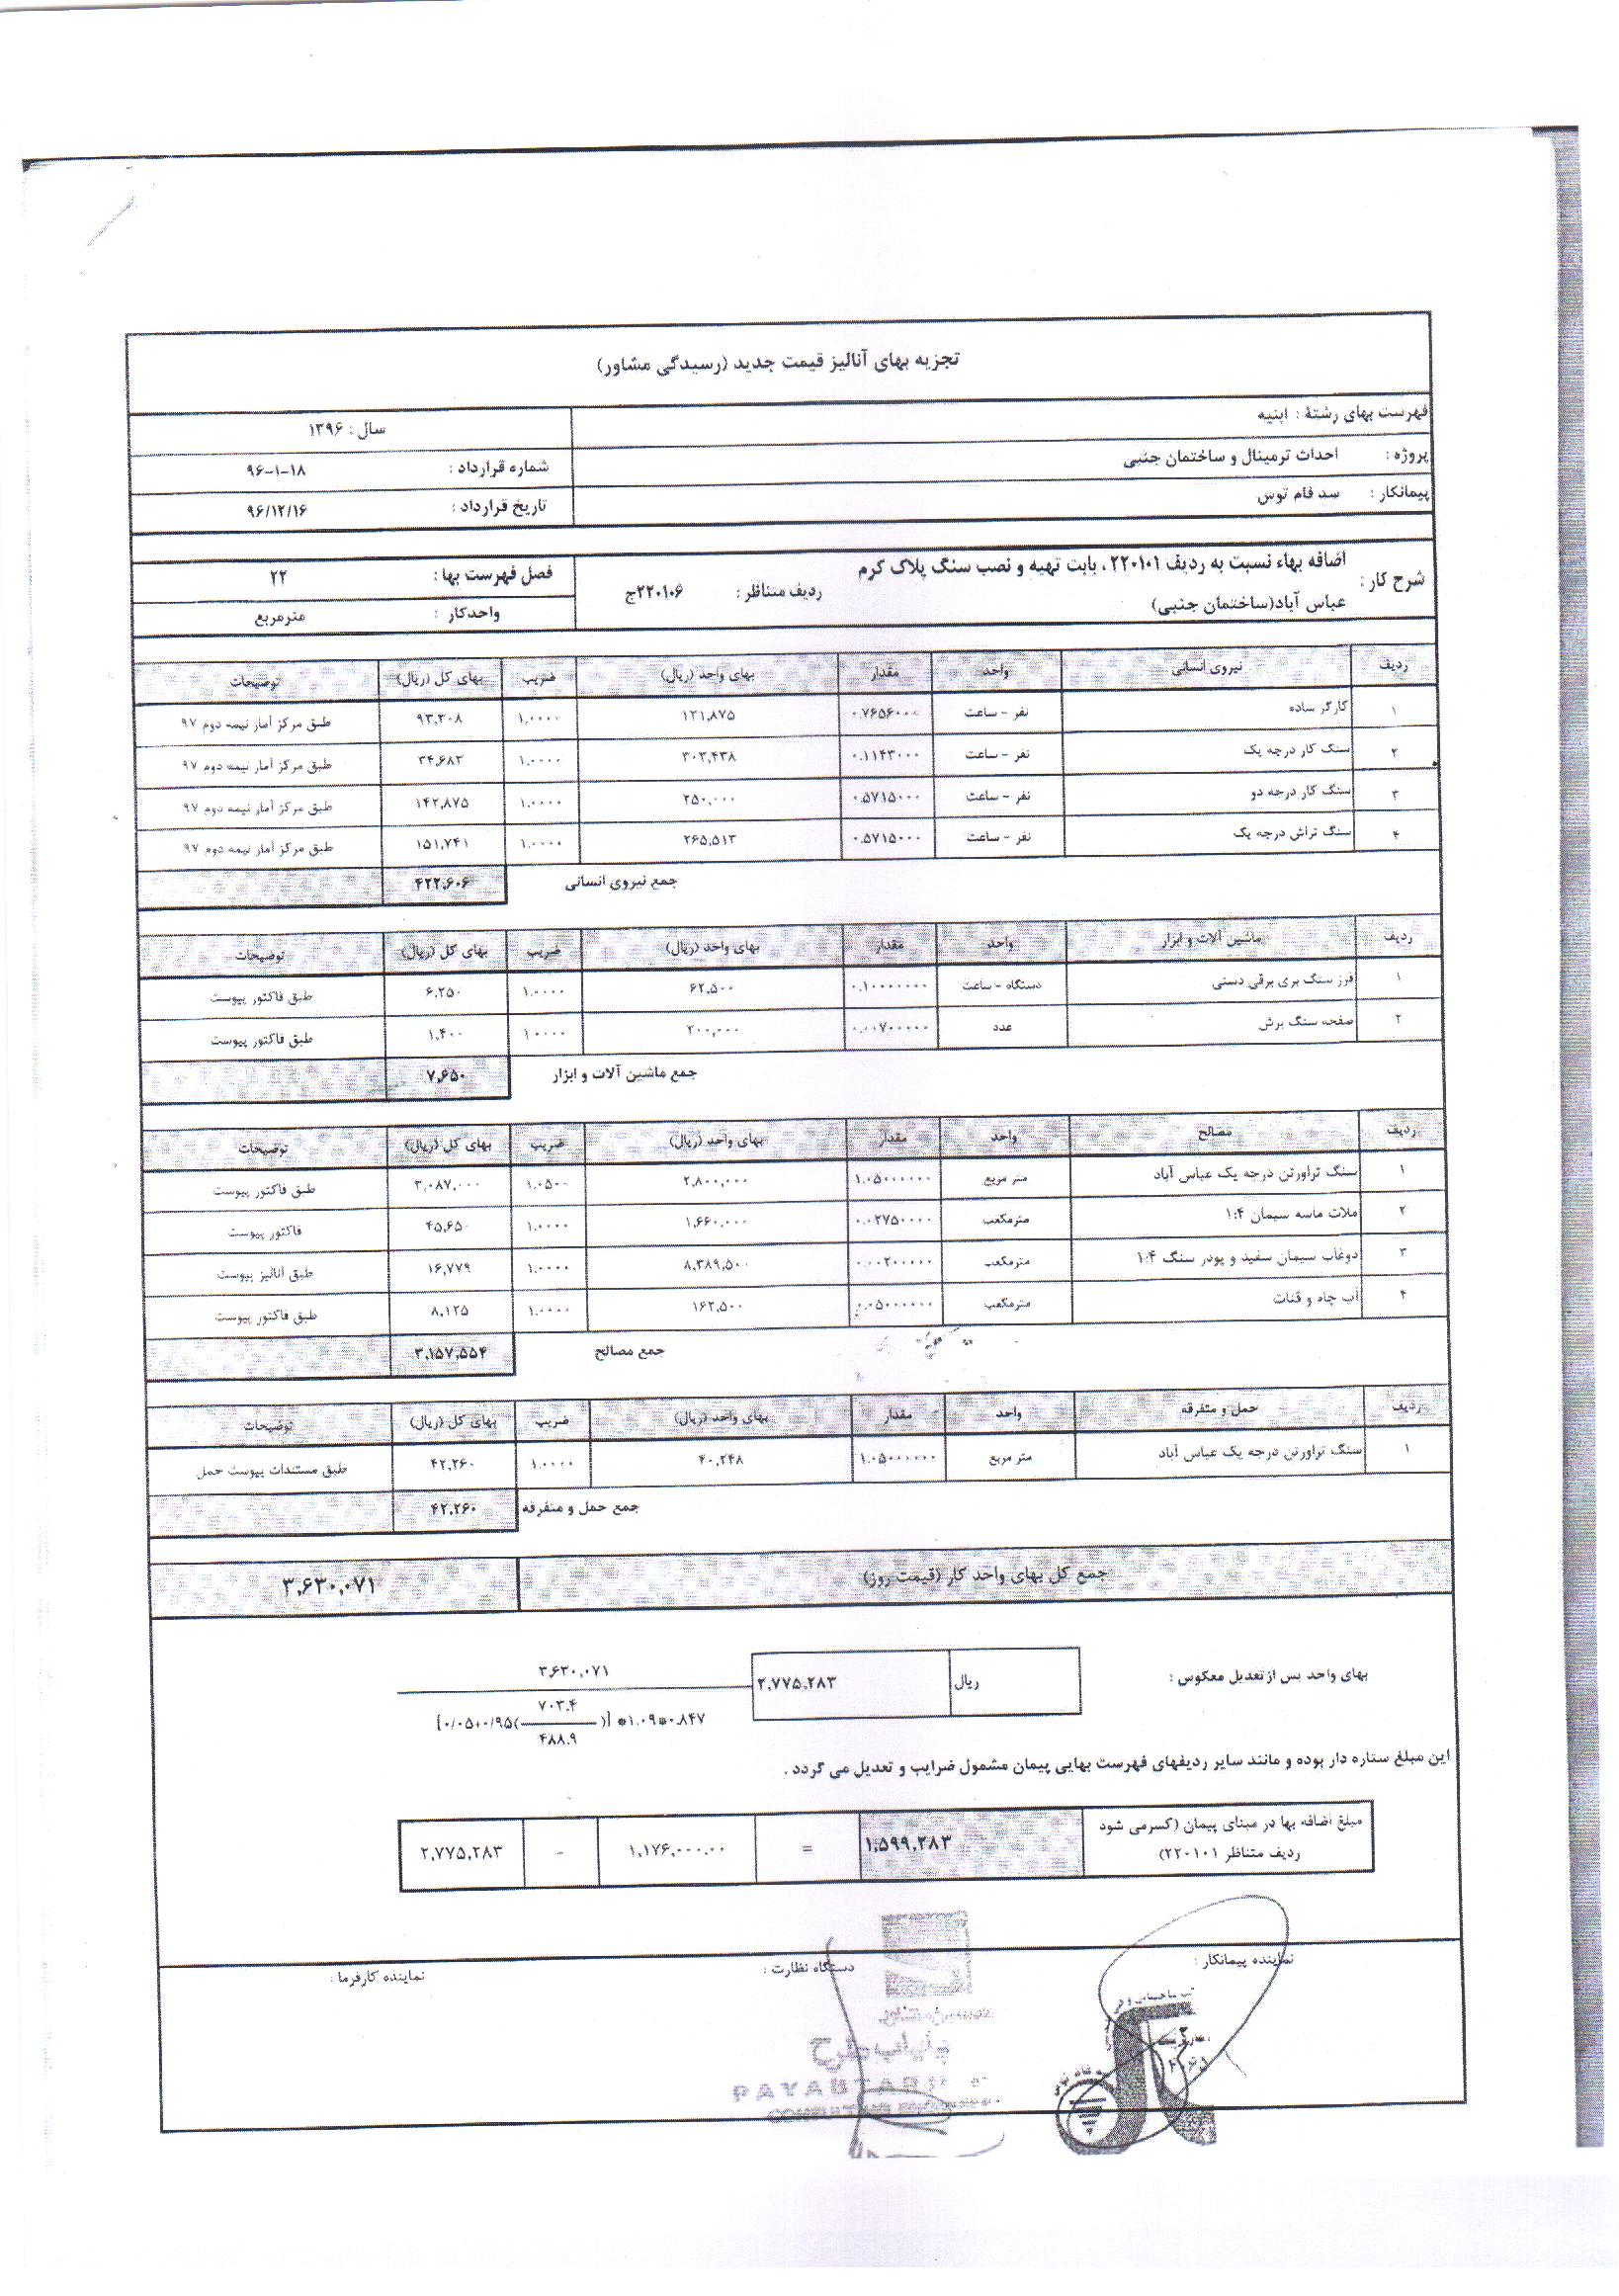 تجزیه بهای آنالیز قیمت جدید (رسیدگی مشاور)
فهرست بهای رشتهٔ : ابنیه سال : ۱۳۹۶
پروژه : احداث ترمینال و ساختمان جنبی شماره قرارداد : ۹۶-۱-۱۸
پیمانکار : سد فام توس تاریخ قرارداد : ۹۶/۱۲/۱۶
شرح کار : اضافه بهاء نسبت به ردیف ۲۲۰۱۰۱ ، بابت تهیه و نصب سنگ پلاک کرم
عباس آباد(ساختمان جنبی) ردیف متناظر : ۲۲۰۱۰۶ج
فصل فهرست بها : ۲۲
واحدکار : مترمربع
ردیف نیروی انسانی واحد مقدار بهای واحد (ریال) ضریب بهای کل (ریال) توضیحات
۱ کارگر ساده نفر - ساعت ۰.۷۶۵۶۰۰۰ ۱۲۱,۸۷۵ ۱.۰۰۰۰ ۹۳,۳۰۸ طبق مرکز آمار نیمه دوم ۹۷
۲ سنگ کار درجه یک نفر - ساعت ۰.۱۱۴۳۰۰۰ ۳۰۳,۴۳۸ ۱.۰۰۰۰ ۳۴,۶۸۲ طبق مرکز آمار نیمه دوم ۹۷
۳ سنگ کار درجه دو نفر - ساعت ۰.۵۷۱۵۰۰۰ ۲۵۰,۰۰۰ ۱.۰۰۰۰ ۱۴۲,۸۷۵ طبق مرکز آمار نیمه دوم ۹۷
۴ سنگ تراش درجه یک نفر - ساعت ۰.۵۷۱۵۰۰۰ ۲۶۵,۵۱۳ ۱.۰۰۰۰ ۱۵۱,۷۴۱ طبق مرکز آمار نیمه دوم ۹۷
جمع نیروی انسانی ۴۲۲,۶۰۶
ردیف ماشین آلات و ابزار واحد مقدار بهای واحد (ریال) ضریب بهای کل (ریال) توضیحات
۱ فرز سنگ بری برقی دستی دستگاه - ساعت ۰.۱۰۰۰۰۰۰۰ ۶۲,۵۰۰ ۱.۰۰۰۰ ۶,۲۵۰ طبق فاکتور پیوست
۲ صفحه سنگ برش عدد ۰.۰۰۷۰۰۰۰۰ ۲۰۰,۰۰۰ ۱.۰۰۰۰ ۱,۴۰۰ طبق فاکتور پیوست
جمع ماشین آلات و ابزار ۷,۶۵۰
ردیف مصالح واحد مقدار بهای واحد (ریال) ضریب بهای کل (ریال) توضیحات
۱ سنگ تراورتن درجه یک عباس آباد متر مربع ۱.۰۵۰۰۰۰۰۰ ۲,۸۰۰,۰۰۰ ۱.۰۵۰۰ ۳,۰۸۷,۰۰۰ طبق فاکتور پیوست
۲ ملات ماسه سیمان ۱:۴ مترمکعب ۰.۰۲۷۵۰۰۰۰ ۱,۶۶۰,۰۰۰ ۱.۰۰۰۰ ۴۵,۶۵۰ فاکتور پیوست
۳ دوغاب سیمان سفید و پودر سنگ ۱:۴ مترمکعب ۰.۰۰۲۰۰۰۰۰ ۸,۳۸۹,۵۰۰ ۱.۰۰۰۰ ۱۶,۷۷۹ طبق آنالیز پیوست
۴ آب چاه و قنات مترمکعب ۰.۰۵۰۰۰۰۰۰ ۱۶۲,۵۰۰ ۱.۰۰۰۰ ۸,۱۲۵ طبق فاکتور پیوست
جمع مصالح ۳,۱۵۷,۵۵۴
ردیف حمل و متفرقه واحد مقدار بهای واحد (ریال) ضریب بهای کل (ریال) توضیحات
۱ سنگ تراورتن درجه یک عباس آباد متر مربع ۱.۰۵۰۰۰۰۰۰ ۴۰,۲۴۸ ۱.۰۰۰۰ ۴۲,۲۶۰ طبق مستندات پیوست حمل
جمع حمل و متفرقه ۴۲,۲۶۰
جمع کل بهای واحد کار (قیمت روز) ۳,۶۳۰,۰۷۱
بهای واحد پس از تعدیل معکوس : ریال ۲,۷۷۵,۲۸۳
۳,۶۳۰,۰۷۱
{۰/۰۵+۰/۹۵(۷۰۳.۴/۴۸۸.۹)}*۱.۰۹*۰.۸۴۷
این مبلغ ستاره دار بوده و مانند سایر ردیفهای فهرست بهایی پیمان مشمول ضرایب و تعدیل می گردد .
مبلغ اضافه بها در مبنای پیمان (کسرمی شود
ردیف متناظر ۲۲۰۱۰۱) ۱,۵۹۹,۲۸۳ = ۱,۱۷۶,۰۰۰.۰۰ - ۲,۷۷۵,۲۸۳
نماینده پیمانکار : دستگاه نظارت : نماینده کارفرما :